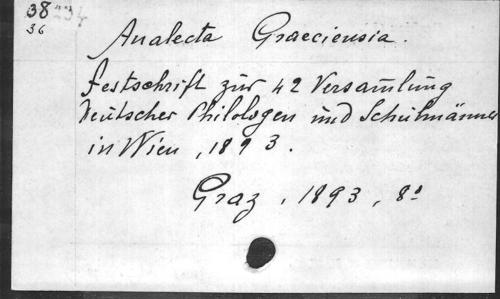 38
36
Analecta Graeciensia.
Festschrift zur 42 Versamlung
Deutscher Philologen und Schulmänner
in Wien, 1893.
Graz, 1893, 8°